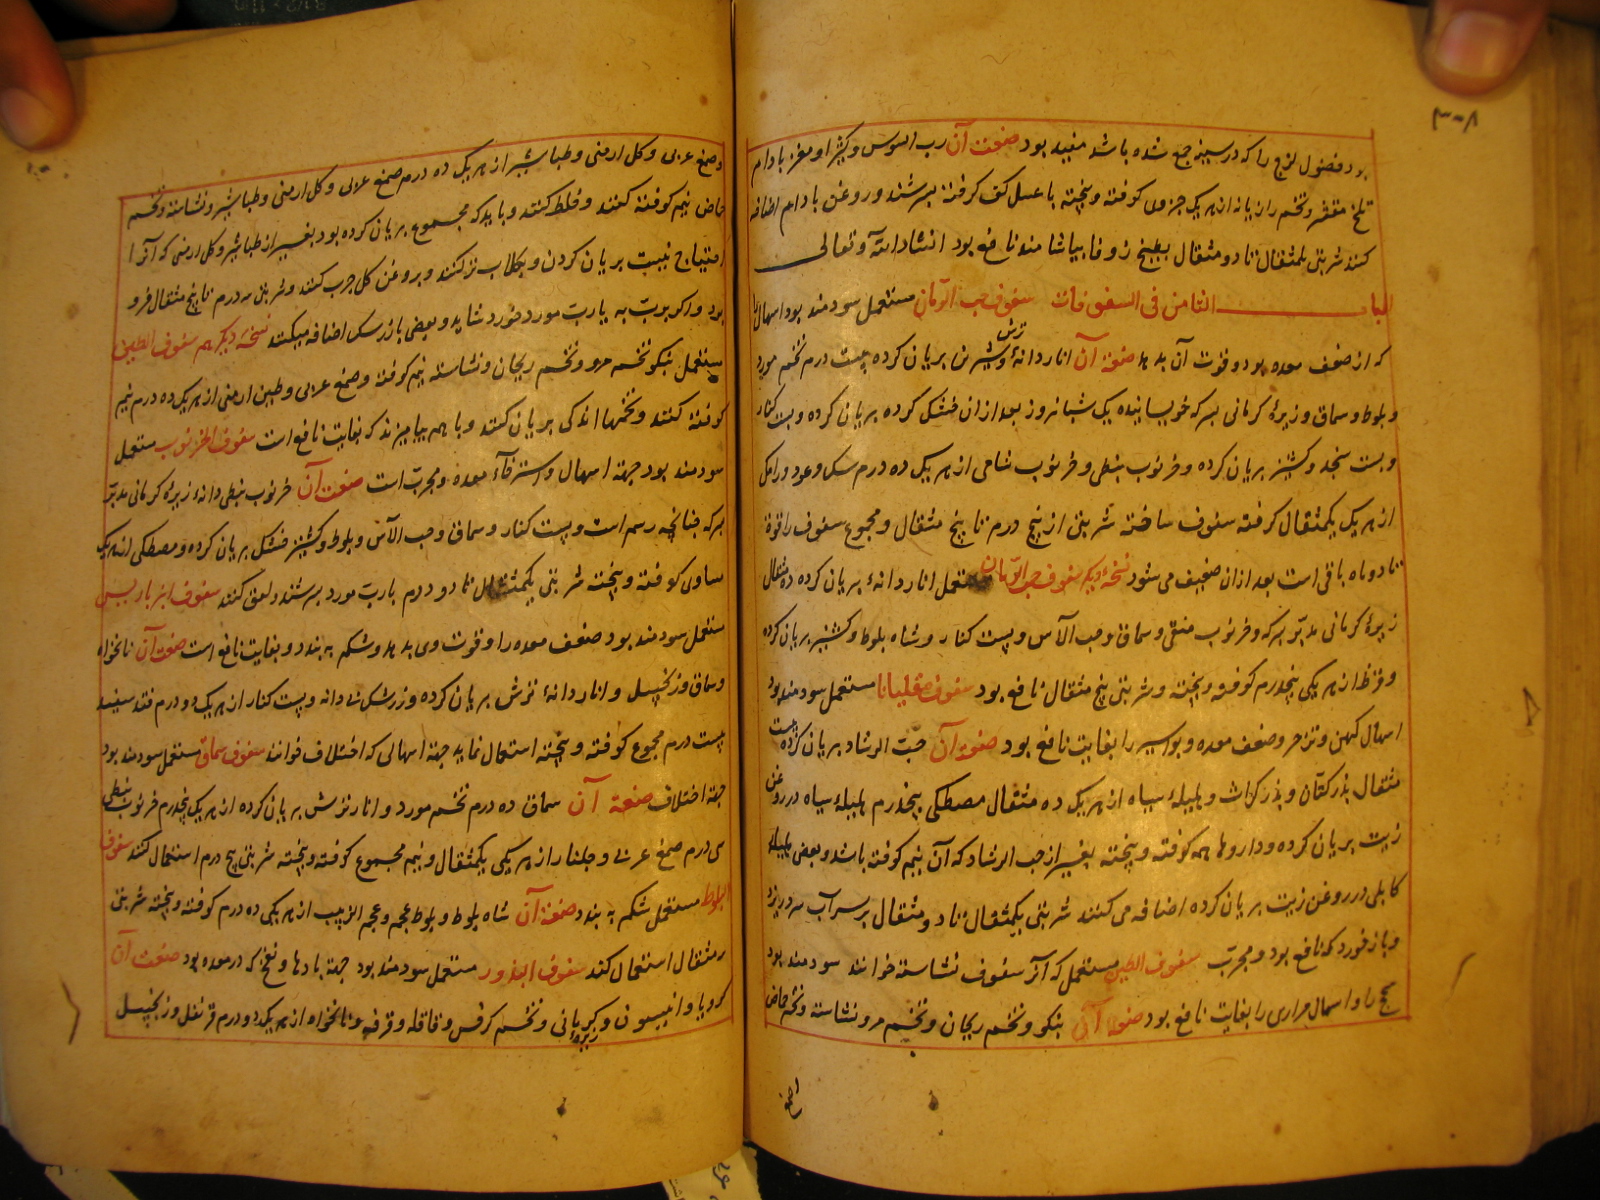 ۳۰۸
برد فضول لزج را که در سینه جمع شده باشد مفید بود صفت آن رب السوس و کثیرا و مغز بادام
تلخ مقشر و تخم رازیانه از هر یک جزوی کوفته و بیخته با عسل کف گرفته بسرشند و روغن بادام اضافه
کنند شربتی یکمثقال تا دو مثقال بطبیخ زوفا بیاشامند نافع بود انشاء الله تعالی
الباب الثامن فی السفوفات سفوف حب الرمان مستعمل سودمند بود اسهال را
که از ضعف معده بود و قوت آن بدهد صفة آن انار دانۀ ترش و شیرین بریان کرده بیست درم تخم مورد
و بلوط و سماق و زیرۀ کرمانی بسرکه خویسانیده یک شبانروز بعد ازان خشک کرده بریان کرده و بست کنار
و بست سنجد و کشنیز بریان کرده و خرنوب نبطی و خرنوب شامی از هر یک ده درم سک و عود و رامک
از هر یک یکمثقال کرفته سفوف ساخته شربتی از پنج درم تا پنج مثقال و مجموع سفوف را قوة
تا دو ماه باقی است بعد ازان ضعیف می شود نسخۀ دیگر سفوف حب الرمان مستعمل انار دانۀ بریان کرده ده مثقال
زیرۀ کرمانی مدبر بسرکه و خرنوب منقی و سماق و حب الآس و پست کنار و شاه بلوط و کشنیز بریان کرده
و قرظ از هر یکی پنجدرم کوفته و بیخته و شربتی پنج مثقال نافع بود سفوف مقلیاثا مستعمل سودمند بود
اسهال کهن و تزحر و ضعف معده و بواسیر را بغایت نافع بود صفة آن حب الرشاد بریان کرده بیست
مثقال بذر کتان و بذر کراث و هلیلۀ سیاه از هر یک ده مثقال مصطکی پنجدرم هلیلۀ سیاه در روغن
زیت بریان کرده و داروها همه کوفته و بیخته بغیر از حب الرشاد که آن نیم کوفته باشد و بعضی هلیلۀ
کابلی در روغن زیت بریان کرده اضافه می کنند شربتی یکمثقال تا دو مثقال بر سر آب سرد ریزد
و باز خورد که نافع بود و مجرب سفوف الطین مستعمل که آنرا سفوف نشاسته خوانند سودمند بود
سحج را و اسهال مراری را بغایت نافع بود صفة آن بنکو و تخم ریحان و تخم مرو نشاسته و تخم حماض
و صمغ عربی و کل ارمنی و طباشیر از هر یک ده درم صمغ عربی و کل ارمنی و طباشیر و نشاسته و تخم
حماض نیم کوفته کنند و خلط کنند و باید که مجموع بریان کرده بود بغیر از طباشیر و کل ارمنی که آنرا
احتیاج نیست بریان کردن و بکلاب تر کنند و بروغن کل چرب کنند و شربتی سه درم تا پنج مثقال فرو
برد و اکر برب به یا رب مورد خورد شاید و بعضی بازرسک اضافه میکنند نسخۀ دیگر هم سفوف الطین
مستعمل بنکو تخم مرو و تخم ریحان و نشاسته نیم کوفته و صمغ عربی و طین ارمنی از هر یک ده درم نیم
کوفته کنند و تخمها اندکی بریان کنند و با هم بیامیزند که بغایت نافع است سفوف الخرنوب مستعمل
سودمند بود جهة اسهال و استرخآء معده و مجرب است صفت آن خرنوب نبطی دانه زیرۀ کرمانی مدبر
بسرکه چنانچه رسم است و پست کنار و سماق و حب الآس و بلوط و کشنیز خشک بریان کرده و مصطکی از هر یک
مساوی کوفته و بیخته شربتی یکمثقال تا دو درم با رب مورد بسرشند و لعق کنند سفوف انبر باریس
مستعمل سودمند بود ضعف معده را و قوت وی بدهد و شکم به بندد و بغایت نافع است صفت آن نانخواه
و سماق و زنجبیل و انار دانۀ ترش بریان کرده و زرشک بی دانه و پست کنار از هر یک دو درم قند سفید
بیست درم مجموع کوفته و بیخته استعمال نماید جهة اسهالی که اختلاف خوانند سفوف سماق مستعمل سودمند بود
جهة اختلاف صفة آن سماق ده درم تخم مورد و انار ترش بریان کرده از هر یک پنجدرم خرنوب نبطی
سی درم صمغ عربی و جلنار از هر یکی یکمثقال و نیم مجموع کوفته و بیخته شربتی پنج درم استعمال کنند سفوف
البلوط مستعمل شکم به بندد صفة آن شاه بلوط و بلوط عجم و عجم الزبیب از هر یکی ده درم کوفته و بیخته شربتی
سه مثقال استعمال کند سفوف البذور مستعمل سودمند بود جهة بادها و نفخ که در معده بود صفت آن
کرویا و انیسون و زیره کرمانی و تخم کرفس و قاقله و قرفه و نانخواه از هر یک دو درم قرنفل و زنجبیل